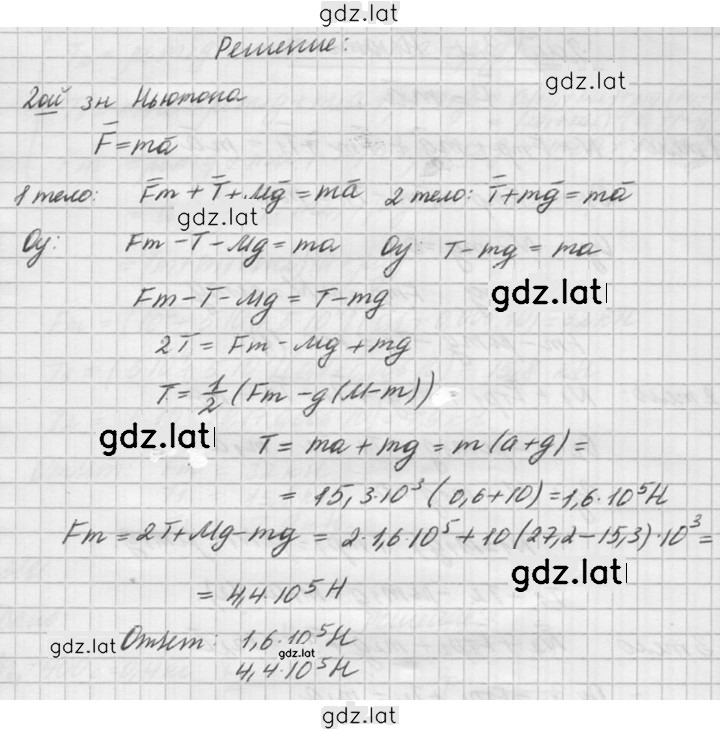 gdz.lat
Решение:
gdz.lat
2ой зн Ньютона
F̄=mā
1 тело: F̄т + T̄ + Mḡ = mā 2 тело: T̄+mḡ = mā
gdz.lat
Оу: Fт - T - Mg = ma Оу: T - mg = ma
Fт - T - Mg = T - mg
gdz.lat
2T = Fт - Mg + mg
T = 1/2 (Fт - g(M-m))
gdz.lat
T = ma + mg = m(a+g) =
= 15,3·10³ (0,6+10) = 1,6·10⁵Н
Fт = 2T+Mg-mg = 2·1,6·10⁵ + 10(27,2-15,3)·10³ =
gdz.lat
= 4,4·10⁵Н
gdz.lat
Ответ: 1,6·10⁵Н
gdz.lat
4,4·10⁵Н
gdz.lat